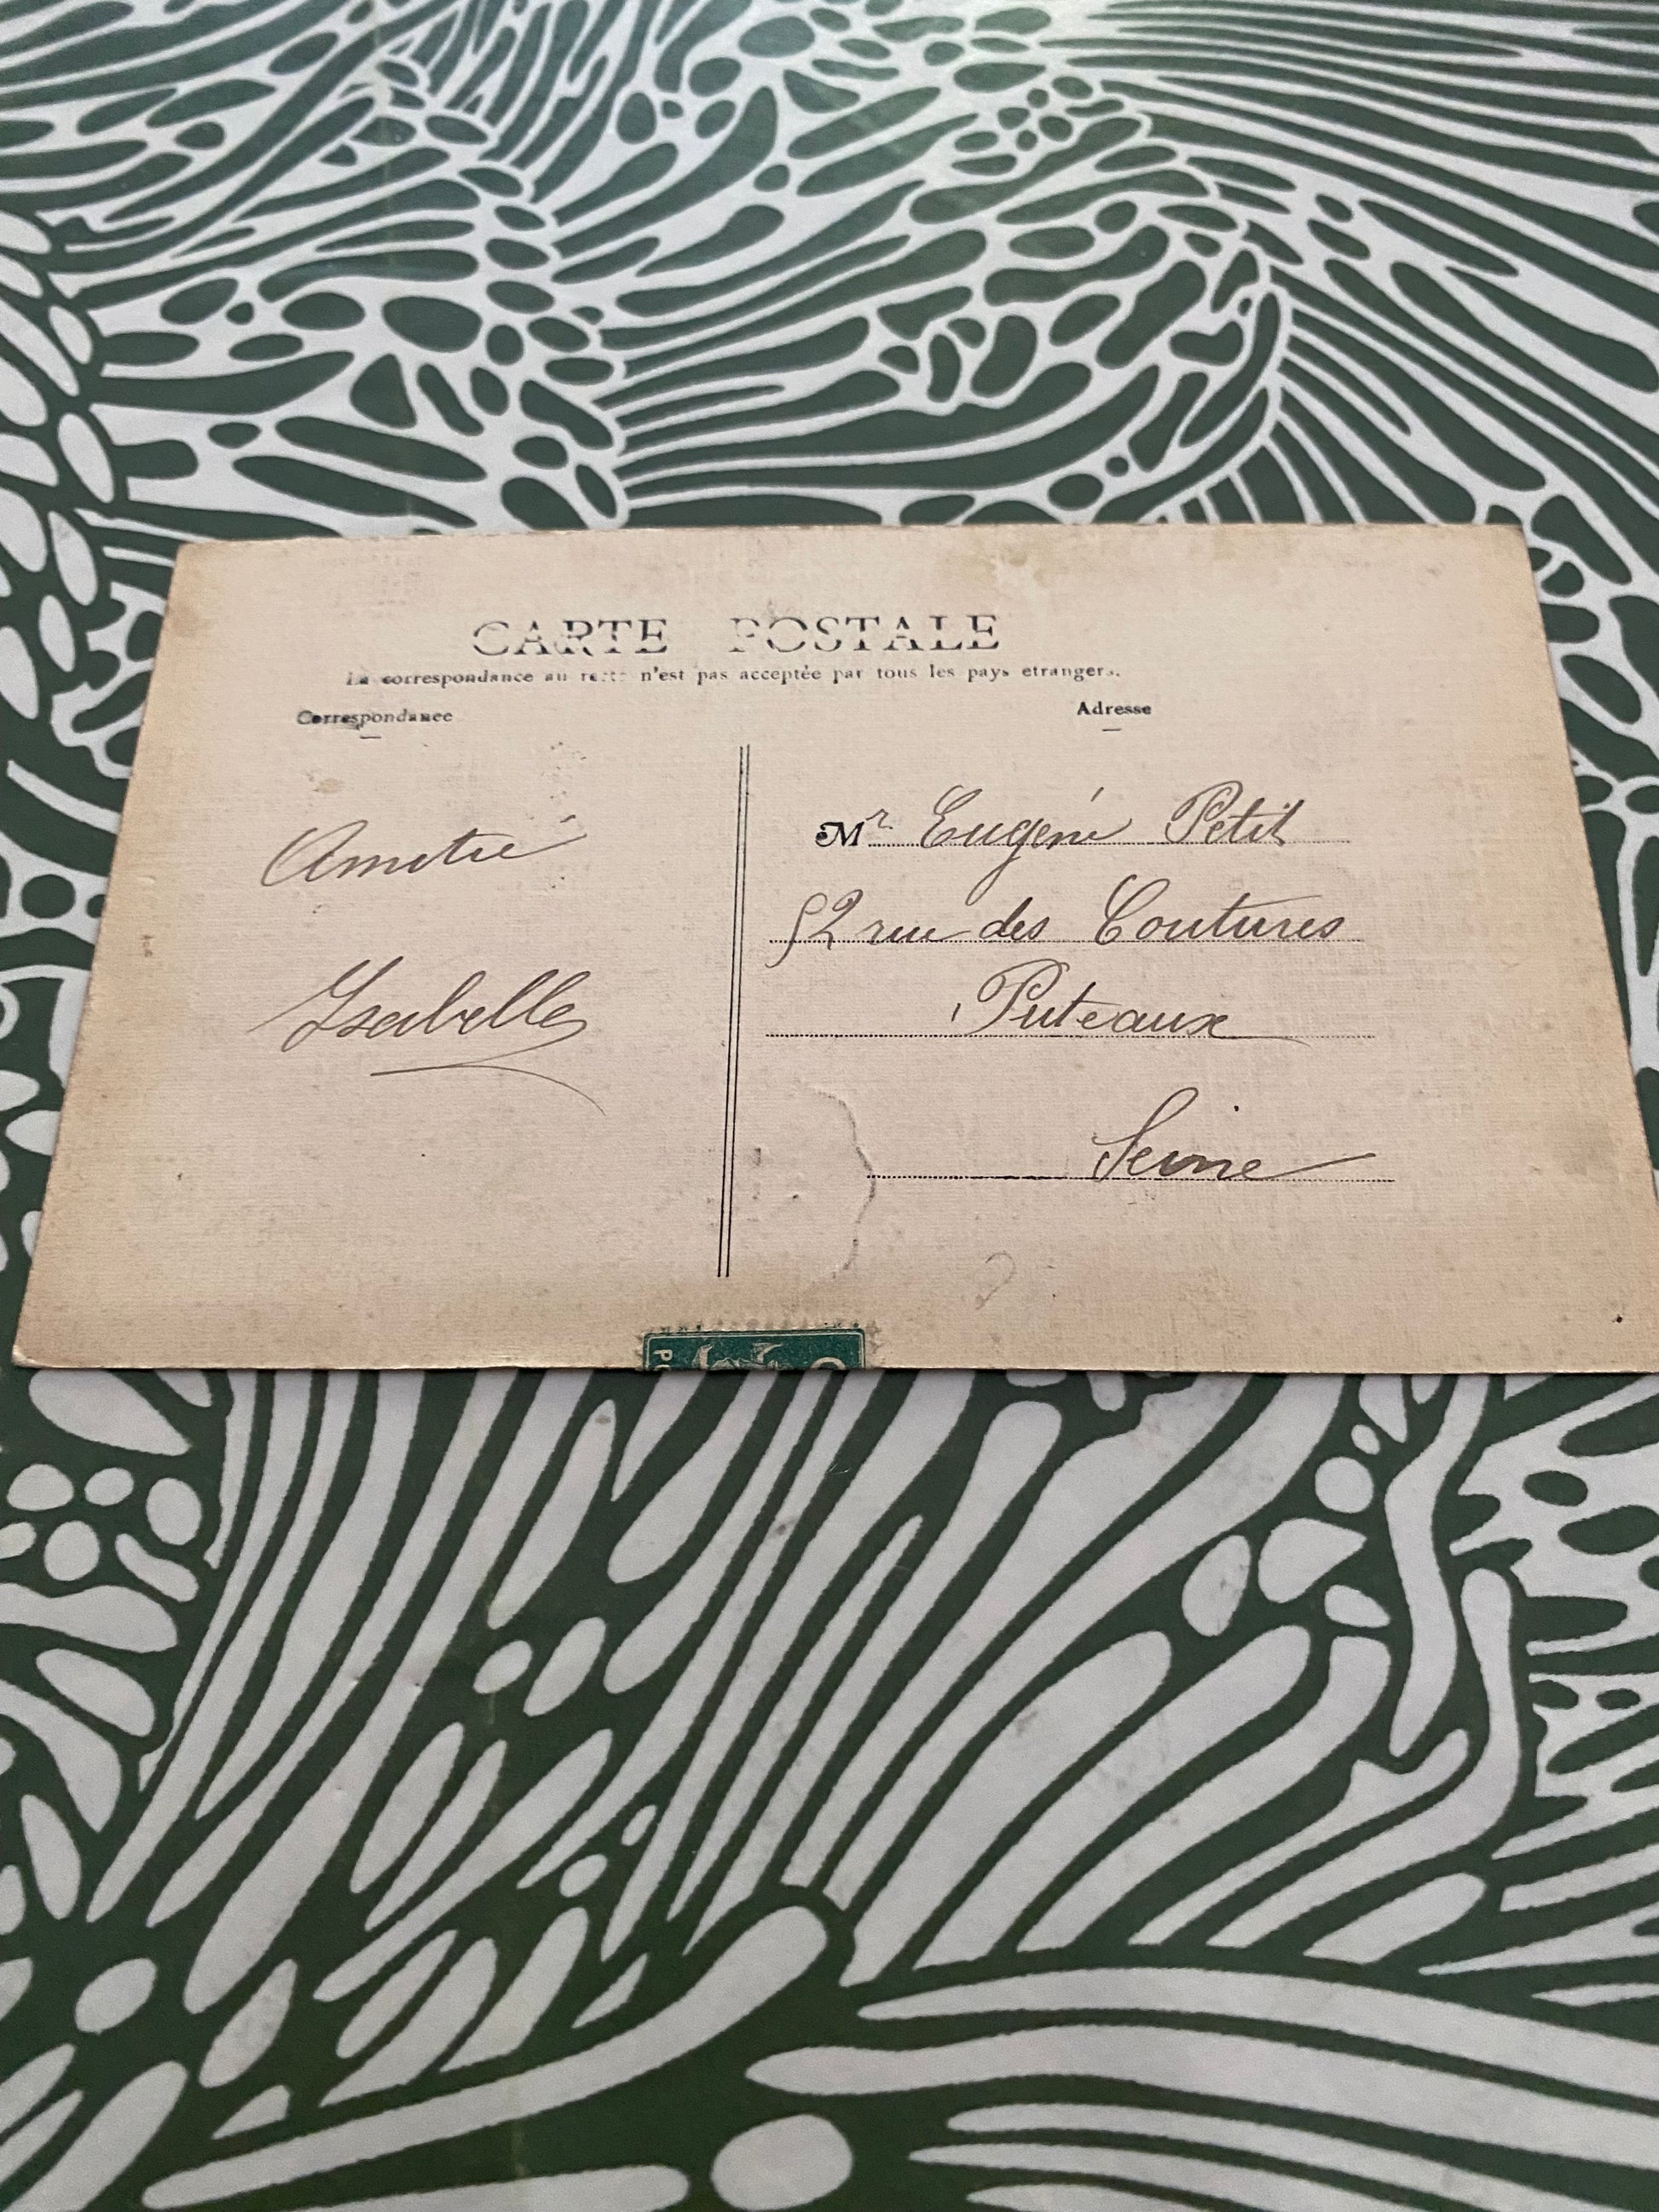 CARTE POSTALE
La correspondance au recto n'est pas acceptée par tous les pays etrangers.
Correspondance
Adresse
Amitié
Isabelle
Mr Eugéni Petit
52 rue des Coutures
Puteaux
Seine